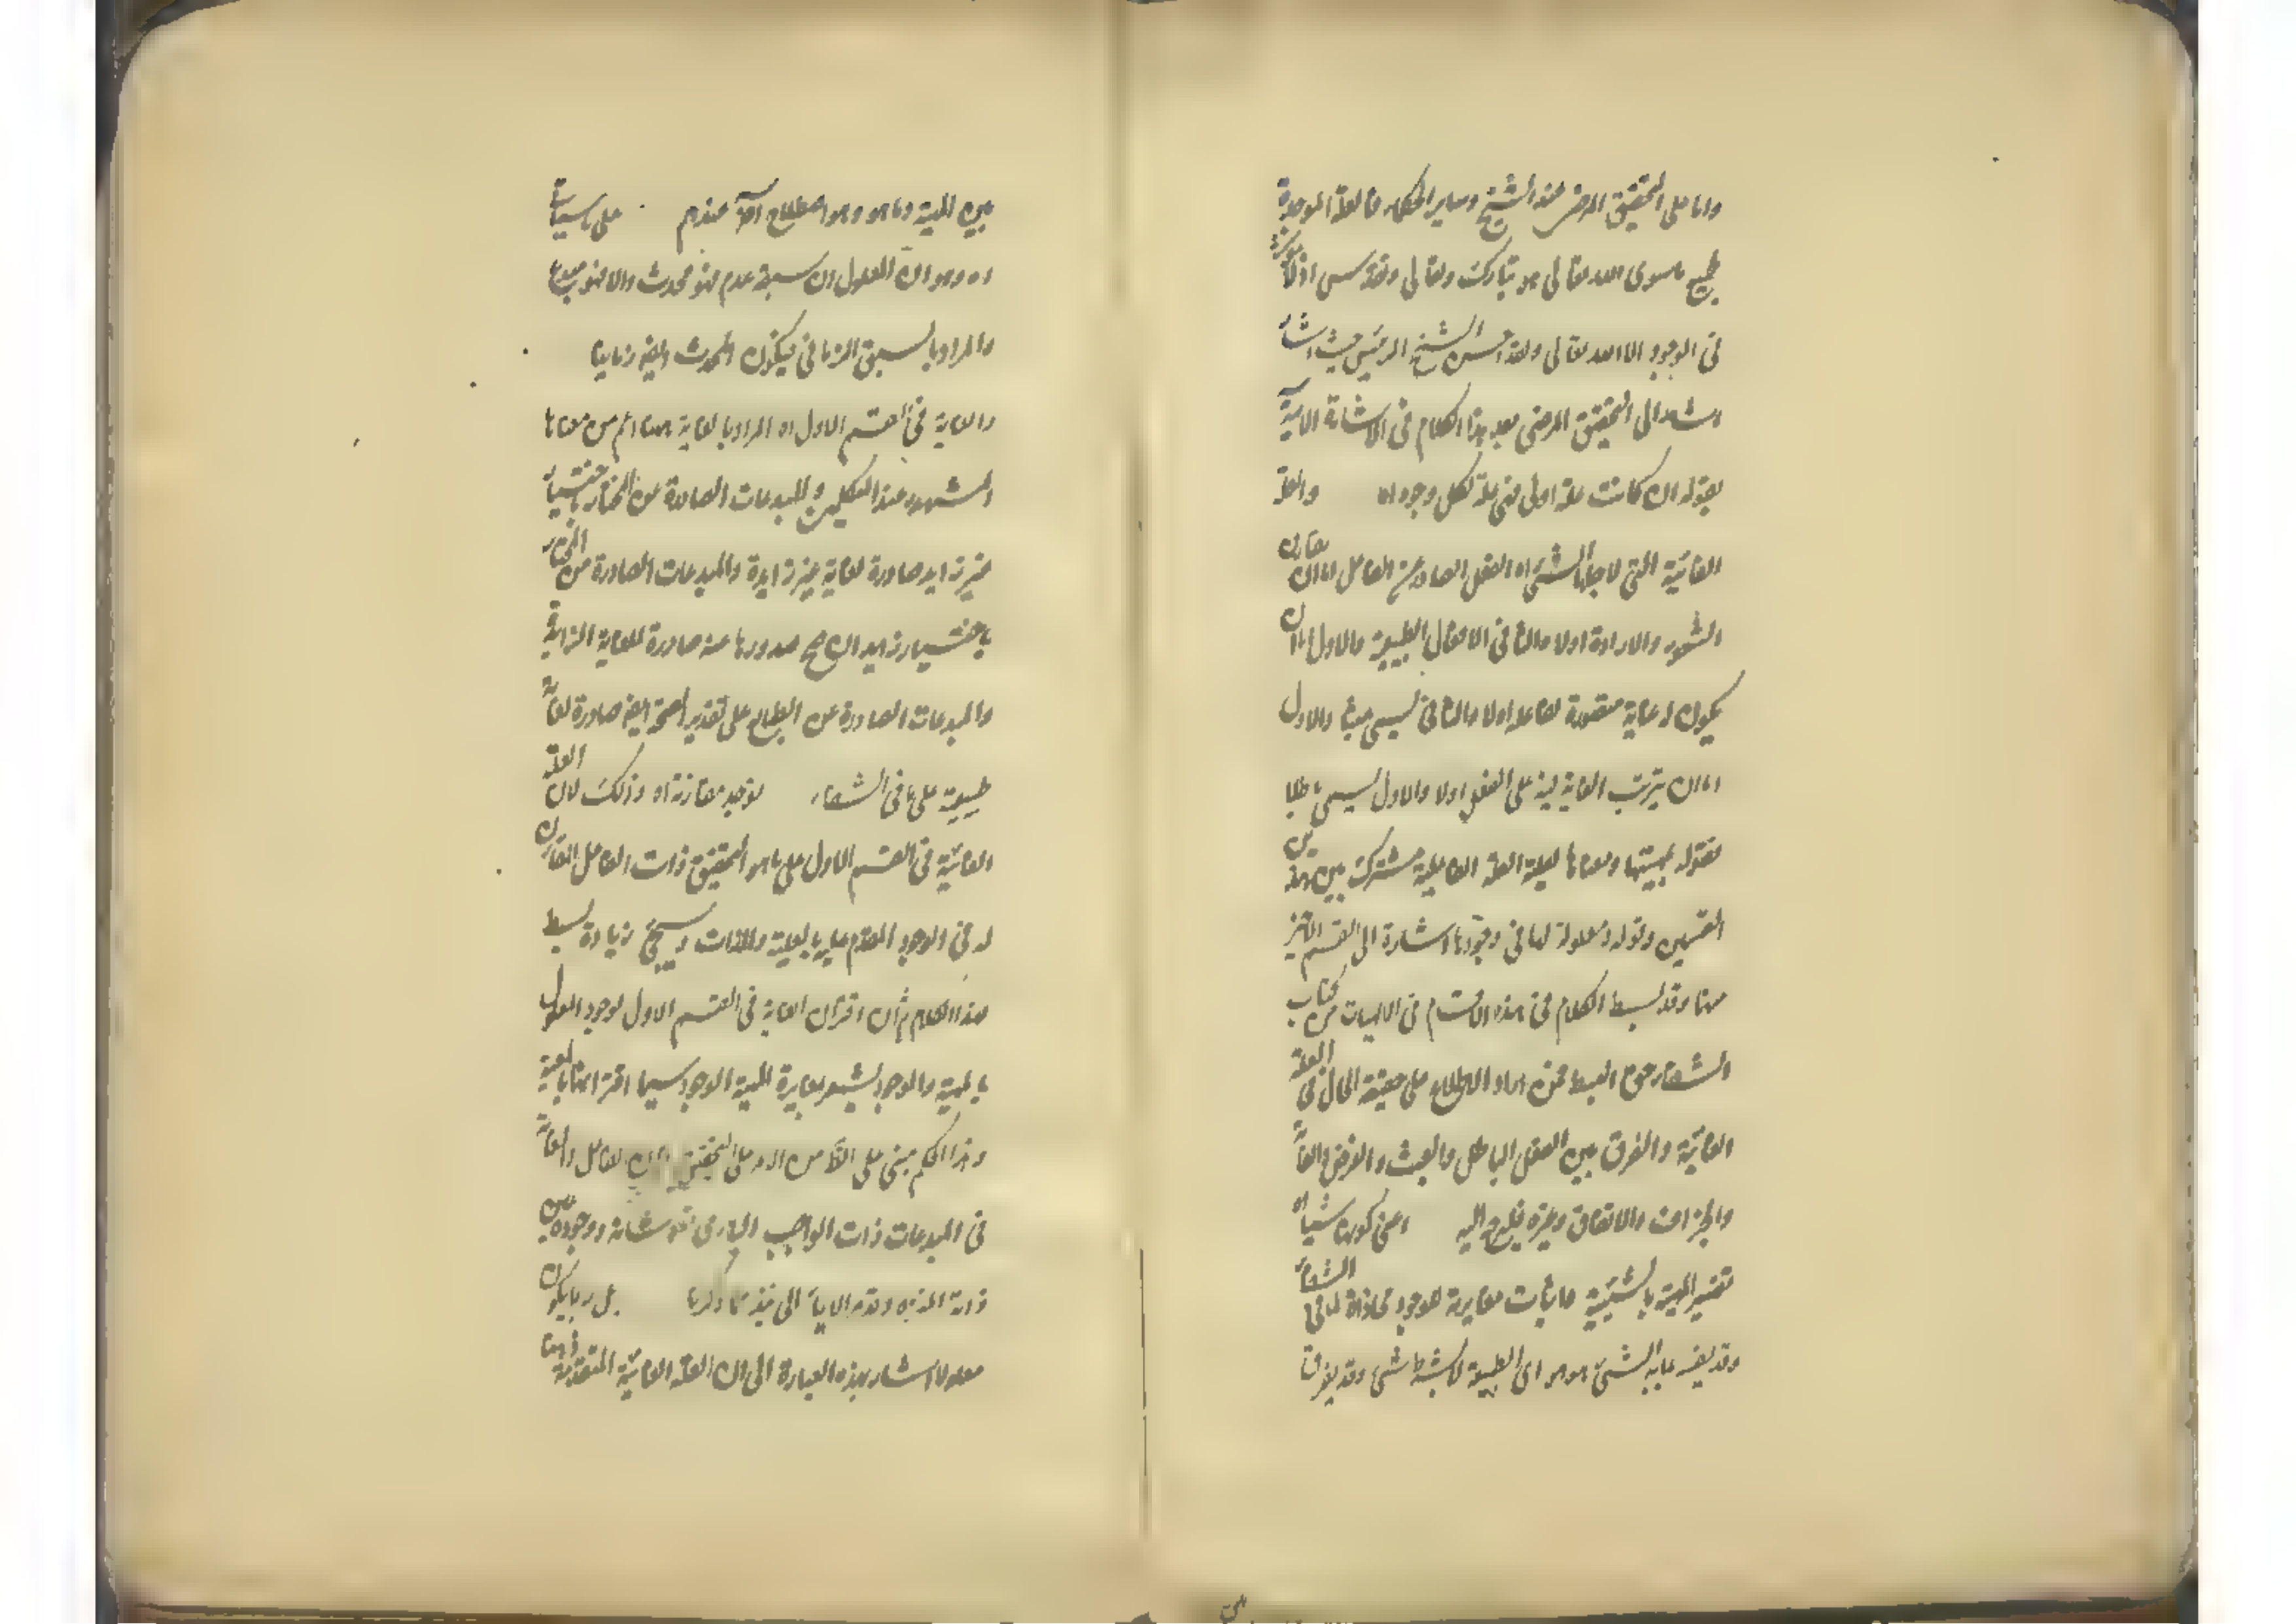 واما على التحقيق المرضى عند الشيخ وساير الحكماء فالعلة الموجدة
لجميع ما سوى الله تعالى هو تبارك وتعالى وتقدس اذ لا مؤثر
فى الوجود الا الله تعالى ولقد احسن الشيخ الرئيس حيث اشار
الى التحقيق المرضى بعد هذا الكلام فى الاشارة الآتية
بقوله ان كانت علة اولى فهى علة لكل وجود اه والعلة
الغائية التى لاجلها الشىء اه الفعل الصادر عن الفاعل اما ان يقارن
الشعور والارادة اولا والثانى الافعال الطبيعية والاول اما ان
يكون له غاية مقصودة لفاعله اولا والثانى يسمى عبثا والاول
اما ان يترتب الغاية فيه على الفعل اولا والاول يسمى باطلا
فقوله بمهيتها ومعناها لعلية العلة الفاعلية مشترك بين هذين
القسمين وقوله ومعلولة لها فى وجودها اشارة الى القسم الاخير
منها وقد بسط الكلام فى هذه الاقسام فى الالهيات من كتاب
الشفاء حق البسط فمن اراد الاطلاع على حقيقة الحال فى العلة
الغائية والفرق بين الفعل الباطل والعبث والغرض والغاية
والجزاف والاتفاق وغيره فليرجع اليه اعنى كونها شيئا اه
تفسير المهية بالشيئية فاثبات مغايرته للوجود محاذاة لما فى الشفاء
وقد يفسر بما به الشىء هو هو اى الطبيعة لا بشرط شىء وقد يفرق
بين المهية وما هو هو اصطلاح آخر عندهم على ما سيأتى
اه وهو ان المعلول ان سبقه عدم فهو محدث والا فهو مبدع
والمراد بالسبق الزمانى فيكون المحدث ايضا زمانيا
والغاية فى القسم الاول اه المراد بالغاية ههنا اعم من معناها
المشهور عند المتكلمين والمبدعات الصادرة عن المختار باختيار
غير زايد صادرة لغاية غير زايدة والمبدعات الصادرة من المختار
باختيار زايد ان صح صدورها عنه صادرة للغاية الزايدة
والمبدعات الصادرة عن الطبايع على تقدير الصحة ايضا صادرة لغاية
طبيعية على ما فى الشفاء توجد مقارنة اه وذلك لان العلة
الغائية فى القسم الاول على ما هو التحقيق ذات الفاعل المقارن
له فى الوجود المقدم عليه بالعلية والذات وسيجئ زيادة بسط
هذا الكلام ثم ان اقتران الغاية فى القسم الاول لوجود المعلول
بالمهية والوجود يشعر بمغايرة المهية الوجود سيما اقترانها بالمعية
وهذا الحكم مبنى على الظ من الامر على التحقيق الفاعل والغاية
فى المبدعات ذات الواجب البارى شانه ووجوده عين
ذاته المنزه بل ربما يكون
معلولا اشار بهذه العبارة الى ان العلة الغائية المتقدمة ذهنا